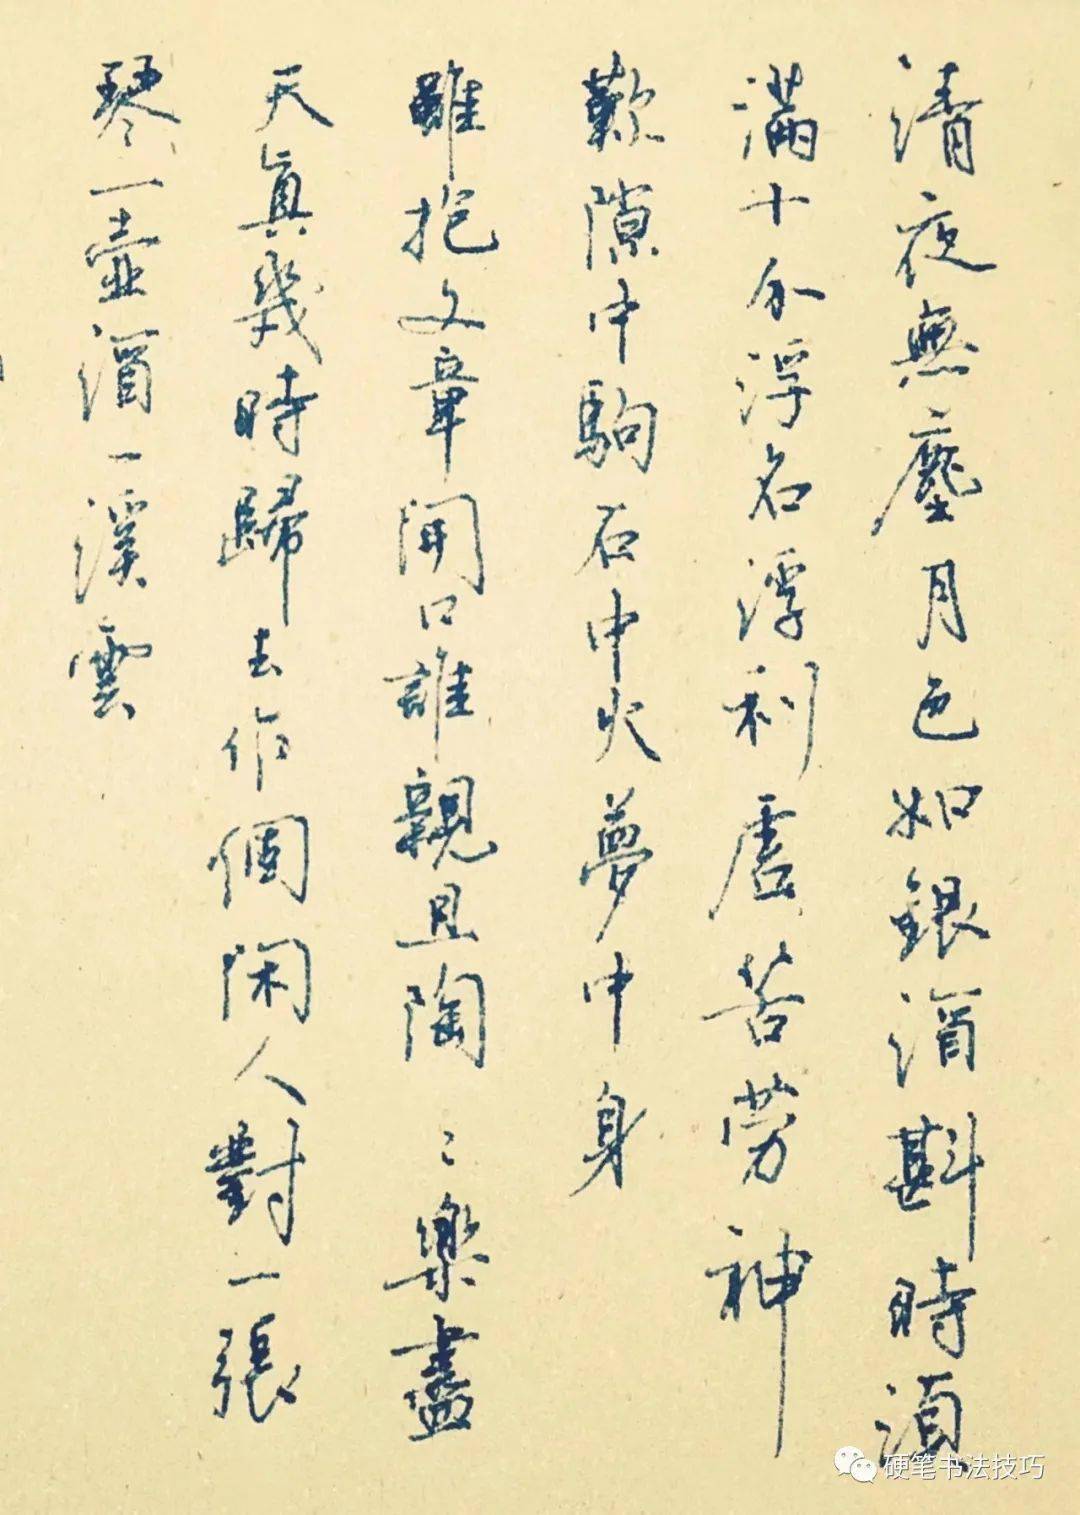 清夜無塵月色如銀酒斟時須
滿十分浮名浮利虛苦勞神
歎隙中駒石中火夢中身
雖抱文章開口誰親且陶〻樂盡
天真幾時歸去作個閑人對一張
琴一壺酒一溪雲
硬笔书法技巧